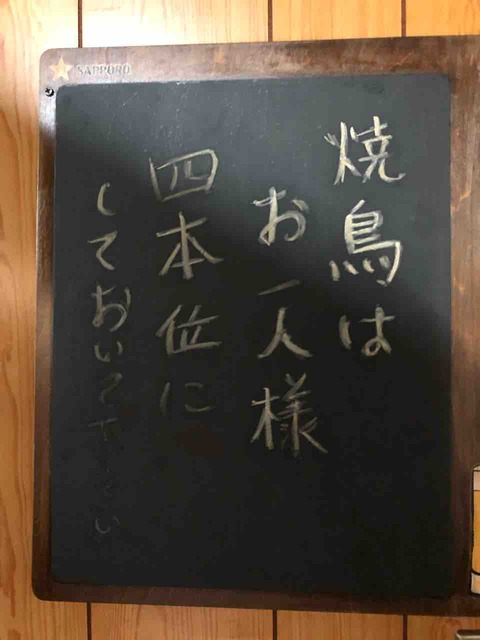 SAPPORO
焼鳥は
お一人様
四本位に
しておいて下さい